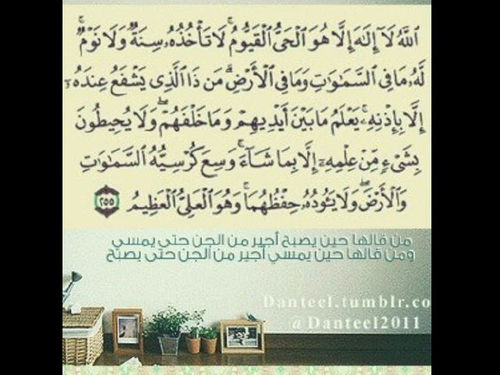 ٱللَّهُ لَآ إِلَٰهَ إِلَّا هُوَ ٱلْحَىُّ ٱلْقَيُّومُ ۚ لَا تَأْخُذُهُۥ سِنَةٌ وَلَا نَوْمٌ ۚ
لَّهُۥ مَا فِى ٱلسَّمَٰوَٰتِ وَمَا فِى ٱلْأَرْضِ ۗ مَن ذَا ٱلَّذِى يَشْفَعُ عِندَهُۥٓ
إِلَّا بِإِذْنِهِۦ ۚ يَعْلَمُ مَا بَيْنَ أَيْدِيهِمْ وَمَا خَلْفَهُمْ ۖ وَلَا يُحِيطُونَ
بِشَىْءٍ مِّنْ عِلْمِهِۦٓ إِلَّا بِمَا شَآءَ ۚ وَسِعَ كُرْسِيُّهُ ٱلسَّمَٰوَٰتِ
وَٱلْأَرْضَ ۖ وَلَا يَـُٔودُهُۥ حِفْظُهُمَا ۚ وَهُوَ ٱلْعَلِىُّ ٱلْعَظِيمُ ٢٥٥
من قالها حين يصبح أجير من الجن حتى يمسي
ومن قالها حين يمسي أجير من الجن حتى يصبح
Danteel.tumblr.co
@Danteel2011